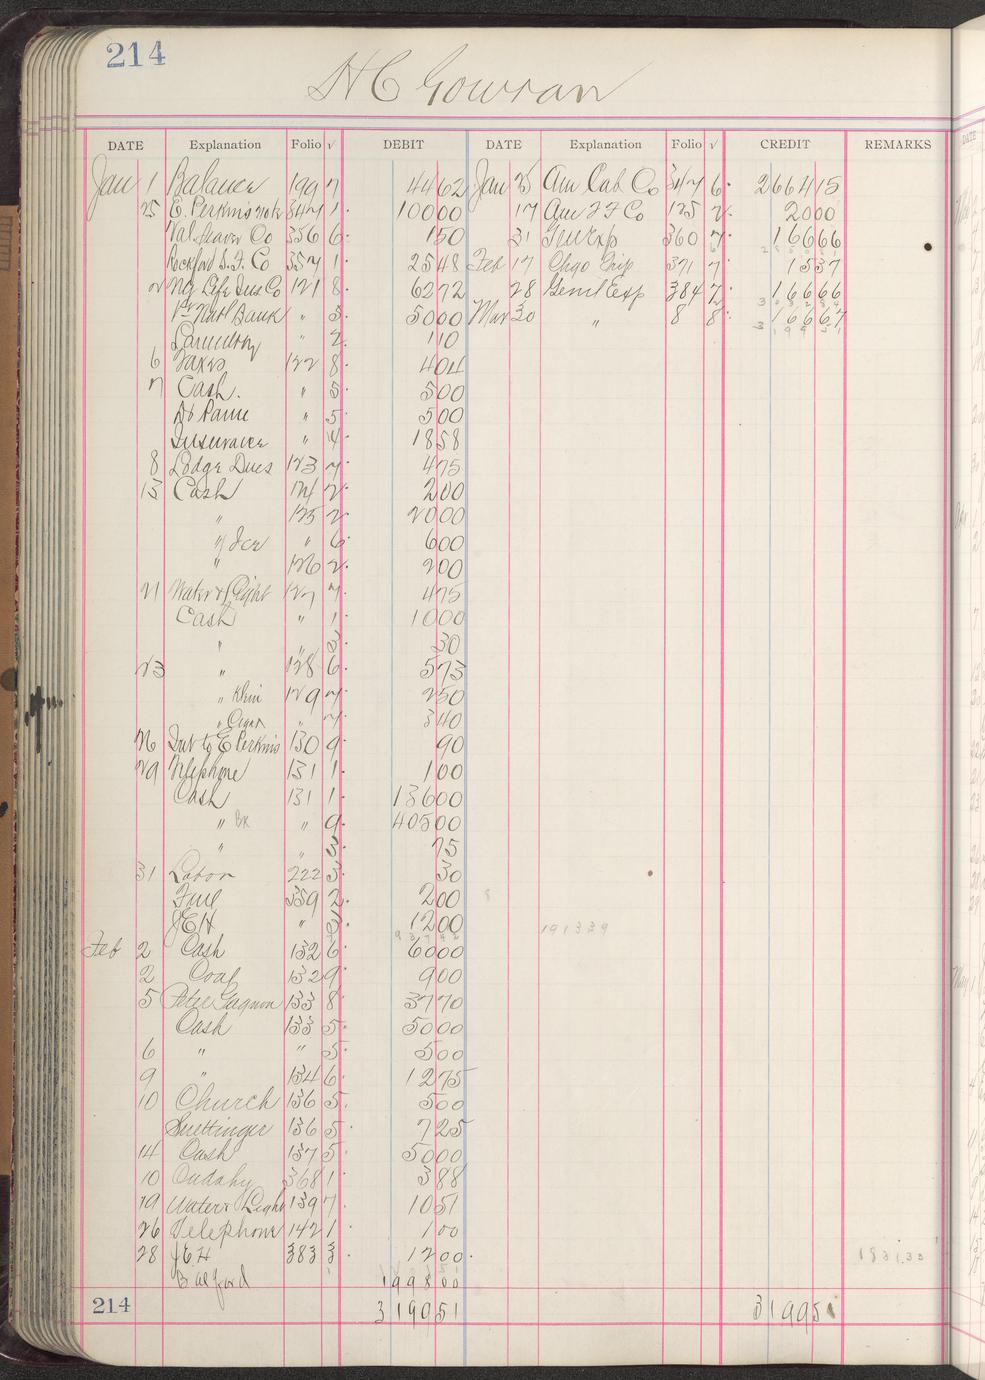 214
H C Gowran
DATE Explanation Folio √ DEBIT DATE Explanation Folio √ CREDIT REMARKS
Jan 1 Balance 199 7 4462 Jan 25 Am Cab Co 347 6 266415
25 E. Perkins note 347 1 10000 17 Am F F Co 125 2 2000
Val Seaver Co 356 6 150 31 Genl Exp 360 7 16666
Rockford S. F. Co 357 1 2548 Feb 17 Chgo Trip 371 7 1537
2 Life Ins Co 121 8 6272 28 Genl Exp 384 7 16666
1st Natl Bank " 3 5000 Mar 30 " 8 8 16667
Laundry " 2 110
6 Taxes 122 8 404
7 Cash. " 5 500
Do Paine " 5 500
Insurance " 4 1858
8 Lodge Dues 123 7 475
13 Cash 124 2 200
" 125 2 2000
" Ice " 6 600
" 126 2 200
21 Water & Light 127 7 475
Cash " 1 1000
" " 3 30
23 " 128 6 573
" Klein 129 7 250
" Cigar " 7 340
26 Int to E Perkins 130 9 90
29 Telephone 131 1 100
Cash 131 1 13600
" BK " 9 40500
" " 3 75
31 Labor 222 3 30
Fuel 359 2 200
JEH " 3 1200
191339
Feb 2 Cash 132 6 6000
2 Coal 132 9 900
5 Peter Gagnon 133 8 3770
Cash 133 5 5000
6 " " 5 500
9 " 134 6 1275
10 Church 136 5 500
Suettinger 136 5 725
14 Cash 137 5 5000
10 Cudahy 368 1 388
19 Water & Light 139 7 1051
26 Telephone 142 1 100
28 JEH 383 3 1200
183133
Bal ford 199800
214 319051 319951